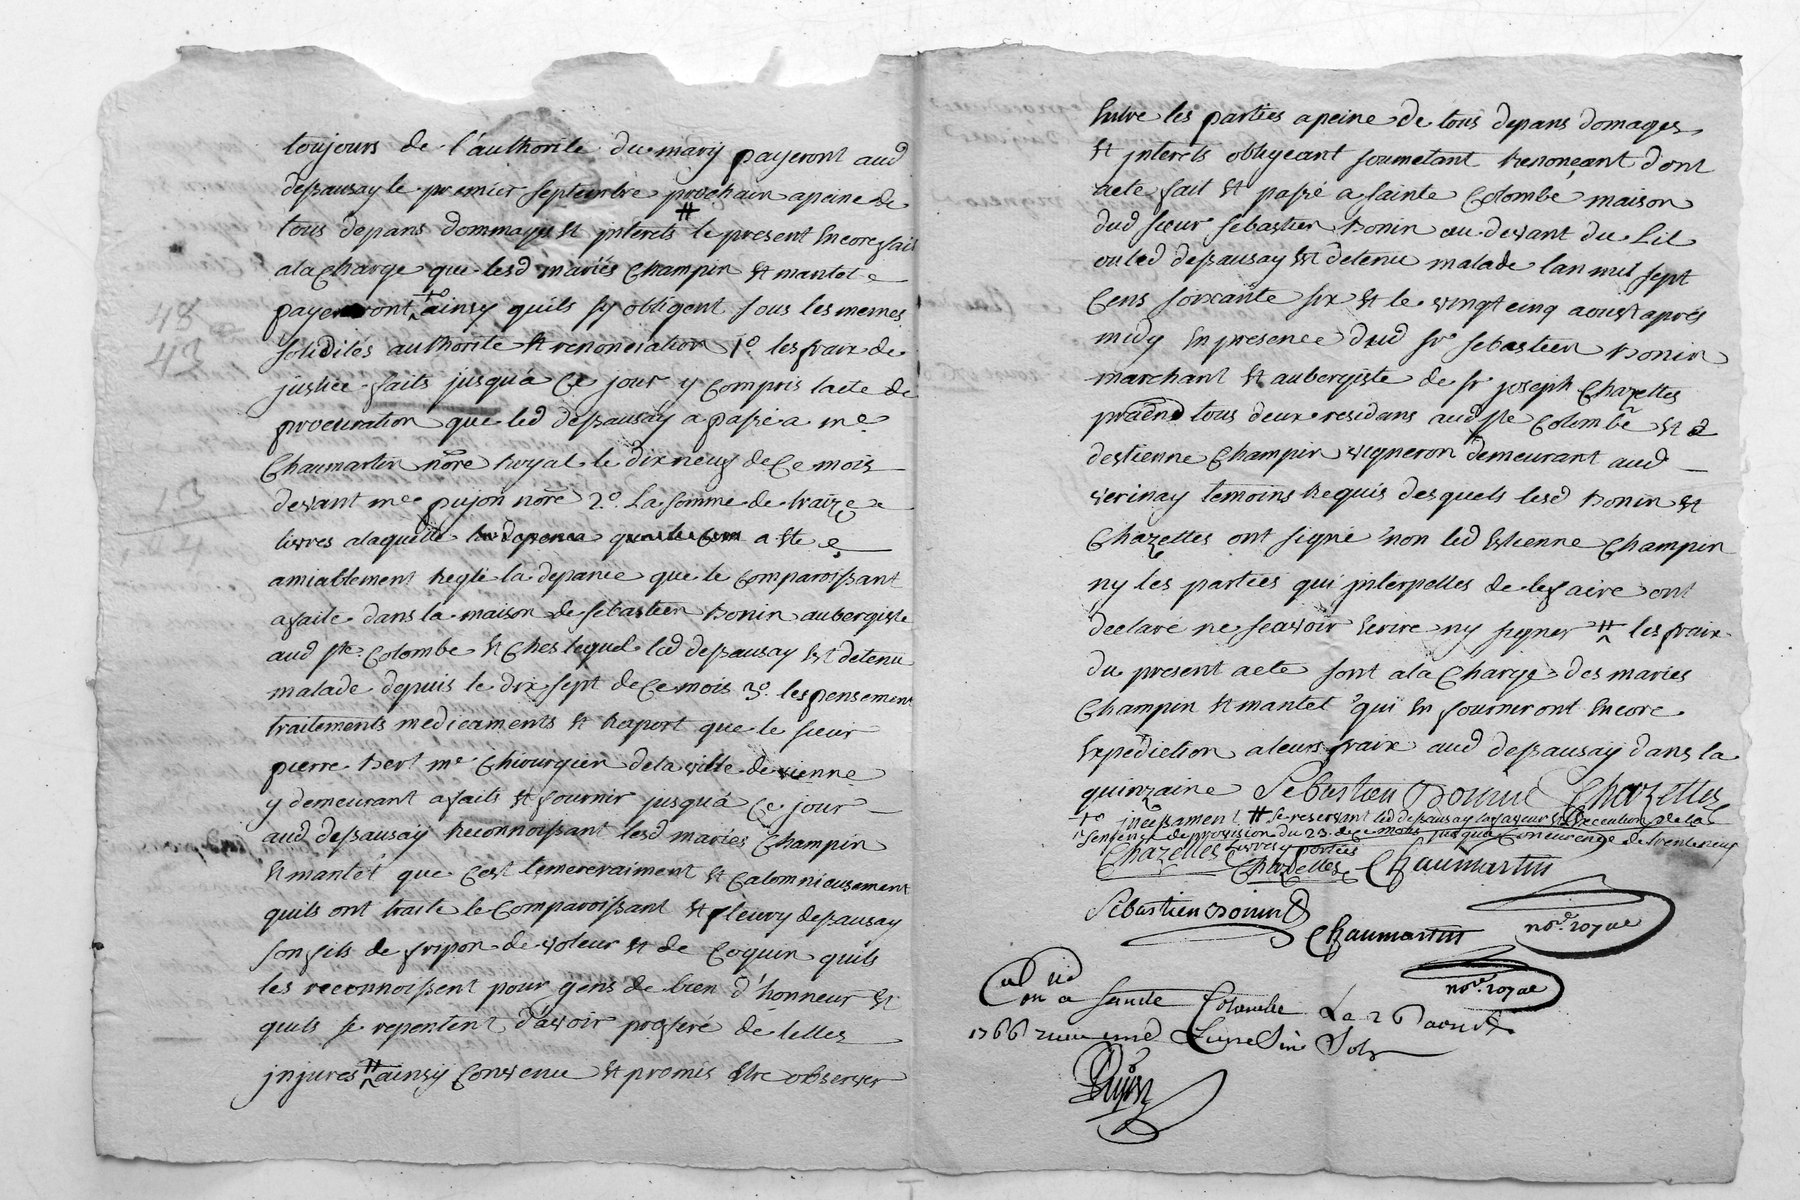 toujours de l'authorite du mary payeront aud
depausay le premier septembre prochain apeine de
tous depans dommages et interets # le present encore fait
ala charge que lesd mariés Champin et mantel
payeront ainsy quils sy obligent sous les memes
solidités authorite et renonciation 1o. les fraix de
justice faits jusqua ce jour y compris lacte de
procuration que led depausay a passé a me
Chaumartin nore royal le dixneuf de ce mois
devant me pujon nore 2o. La somme de traize
livres alaquelle a ete
amiablement reglé la depance que le comparoissant
afaite dans la maison de sebastien bonin aubergiste
aud ste Colombe et ches lequel led depausay est detenu
malade depuis le dix sept de ce mois 3o. les pensement
traitements medicaments et raport que le sieur
pierre me Chirurgien dela ville de vienne
y demeurant afaits et fournir jusqua ce jour
aud depausay reconnoissant lesd mariés Champin
et mantel que cest temerairement et calomnieusement
quils ont traité le comparoissant et fleury depausay
son fils de fripon de voleur et de coquin quils
les reconnoissent pour gens de bien d'honneur et
quils se repentent davoir proferé de telles
injures # ainsy convenu et promis etre observer
48
43
13
44
Entre les parties apeine de tous depans domages
et interets obligeant soumetant renonçant dont
acte fait et passé a sainte Colombe maison
dud sieur sebastien bonin au devant du Lit
ou led depausay est detenu malade lan mil sept
cens soixante six et le vingt cinq aoust après
midy en presence dud sr sebastien bonin
marchant et aubergiste de sr joseph Chazelles
tous deux residans aud ste Colombe et
destienne Champin vigneron demeurant aud
verinay temoins requis desquels lesd bonin et
Chazelles ont signé non led Estienne Champin
ny les parties qui interpellés de le faire ont
declaré ne scavoir ecrire ny signer # les fraix
du present acte sont ala charge des mariés
Champin et mantel qui en fourniront encore
expediction aleurs fraix aud depausay dans la
quinzaine Sebastien Bonin Chazelles
incessament # se reservant led depausay execution de la
sentence de provision du 23 de ce mois jusqua concurrence de trente neuf
Chazelles livres y portées
Chazelles Chaumartin
Sebastien Bonin
Chaumartin nore. royal
nore. royal
a sainte Colombe Le 26 aoust
1766 Livre Sols
Pujon